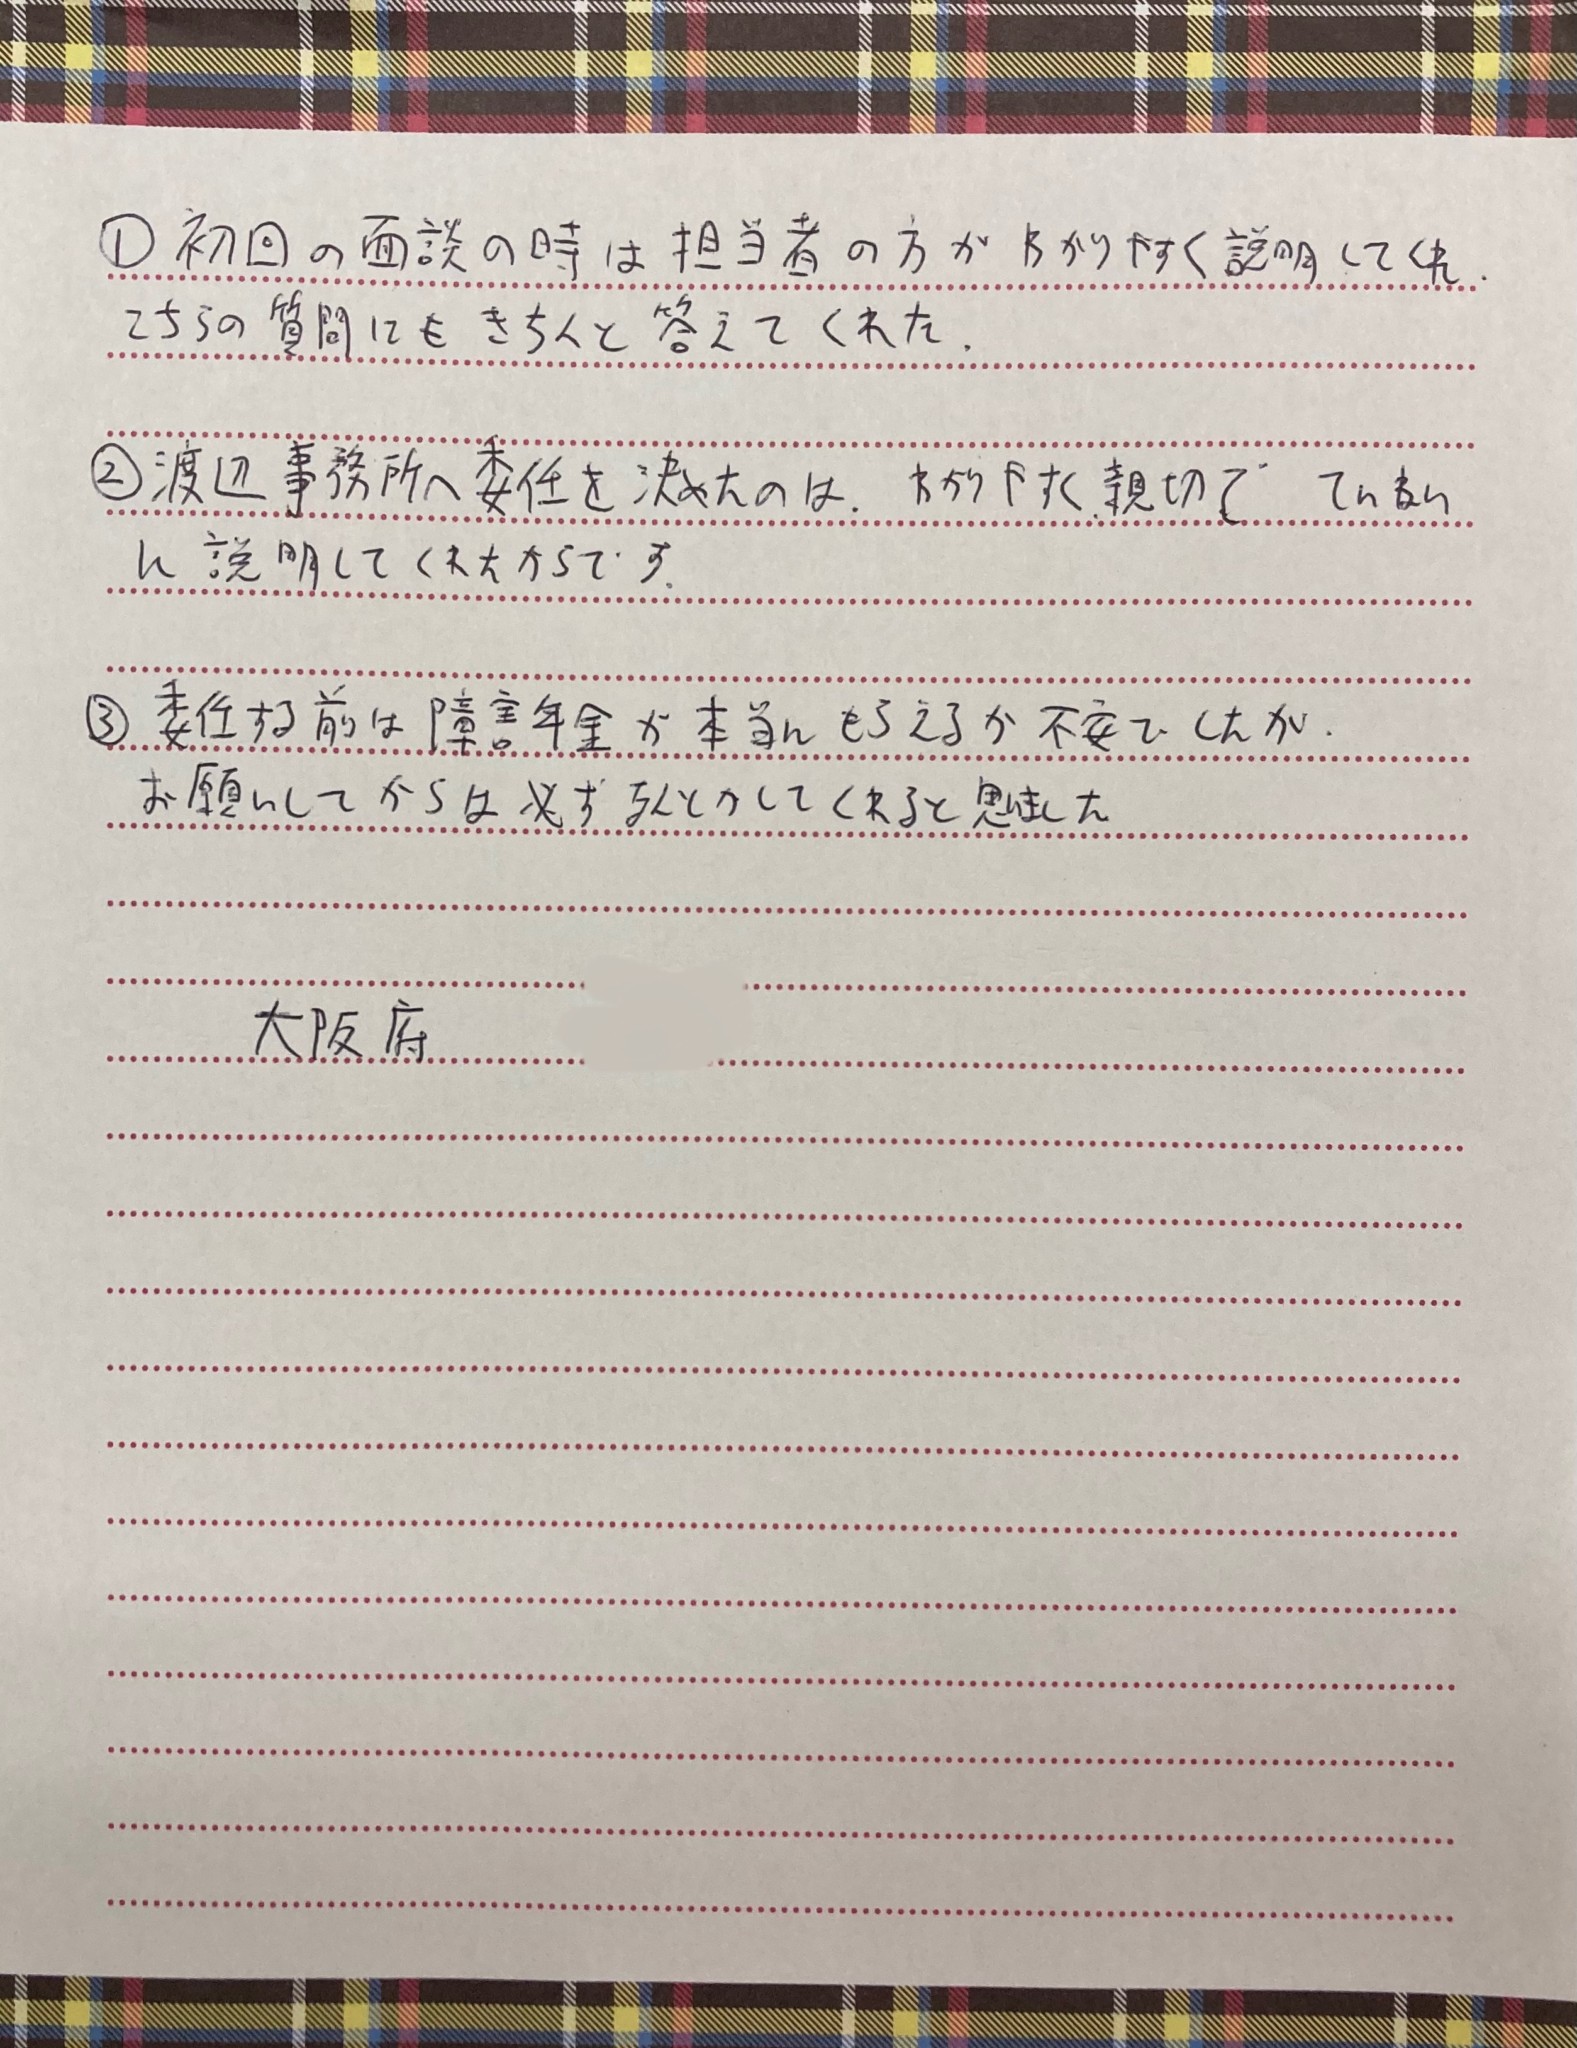 ①初回の面談の時は担当者の方がわかりやすく説明してくれ、
こちらの質問にもきちんと答えてくれた。
②渡辺事務所へ委任を決めたのは、わかりやすく、親切で ていねい
に説明してくれたからです。
③委任する前は障害年金が本当にもらえるか不安でしたが、
お願いしてからは必ずなんとかしてくれると思いました
大阪府